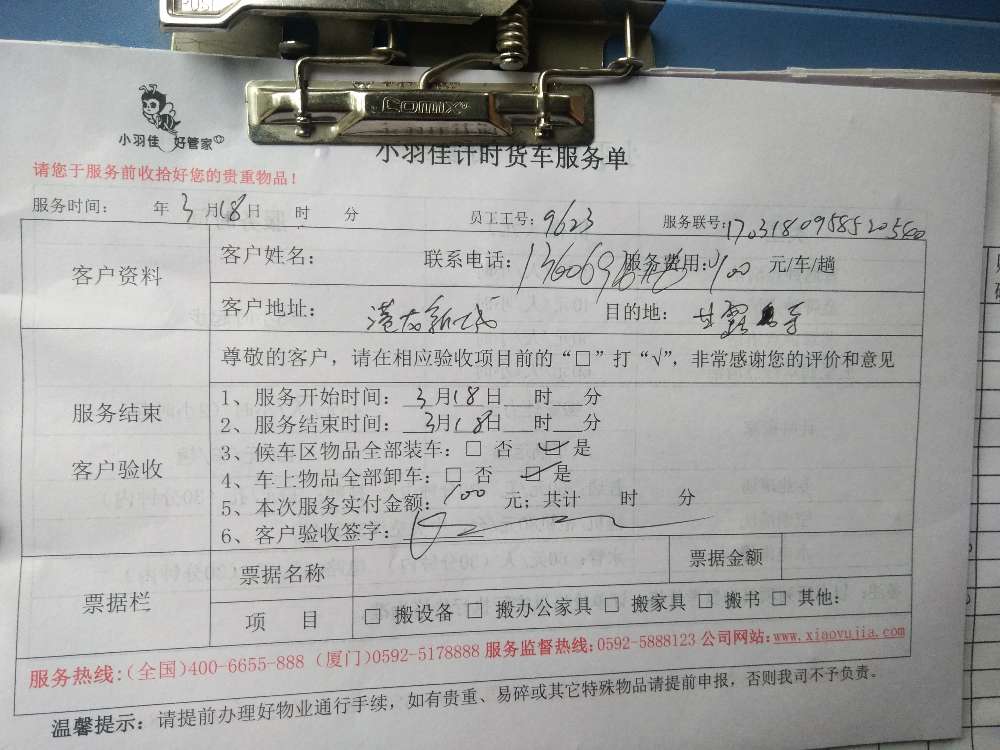 PUSH
COMIX
小羽佳 好管家
小羽佳计时货车服务单
请您于服务前收拾好您的贵重物品！
服务时间： 年3月18日 时 分 员工工号：9623 服务联号：1703180958520540
客户资料
客户姓名： 联系电话： 服务费用：100 元/车/趟
客户地址： 港龙新城 目的地： 甘露寺
服务结束
客户验收
尊敬的客户，请在相应验收项目前的“□”打“√”，非常感谢您的评价和意见
1、服务开始时间：3月18日 时 分
2、服务结束时间：3月18日 时 分
3、候车区物品全部装车：□ 否 ☑ 是
4、车上物品全部卸车：□ 否 ☑ 是
5、本次服务实付金额：100 元；共计 时 分
6、客户验收签字：
票据栏
票据名称 票据金额
项 目 □ 搬设备 □ 搬办公家具 □ 搬家具 □ 搬书 □ 其他：
服务热线：(全国)400-6655-888 (厦门)0592-5178888 服务监督热线：0592-5888123 公司网站：www.xiaoyujia.com
温馨提示：请提前办理好物业通行手续，如有贵重、易碎或其它特殊物品请提前申报，否则我司不予负责。